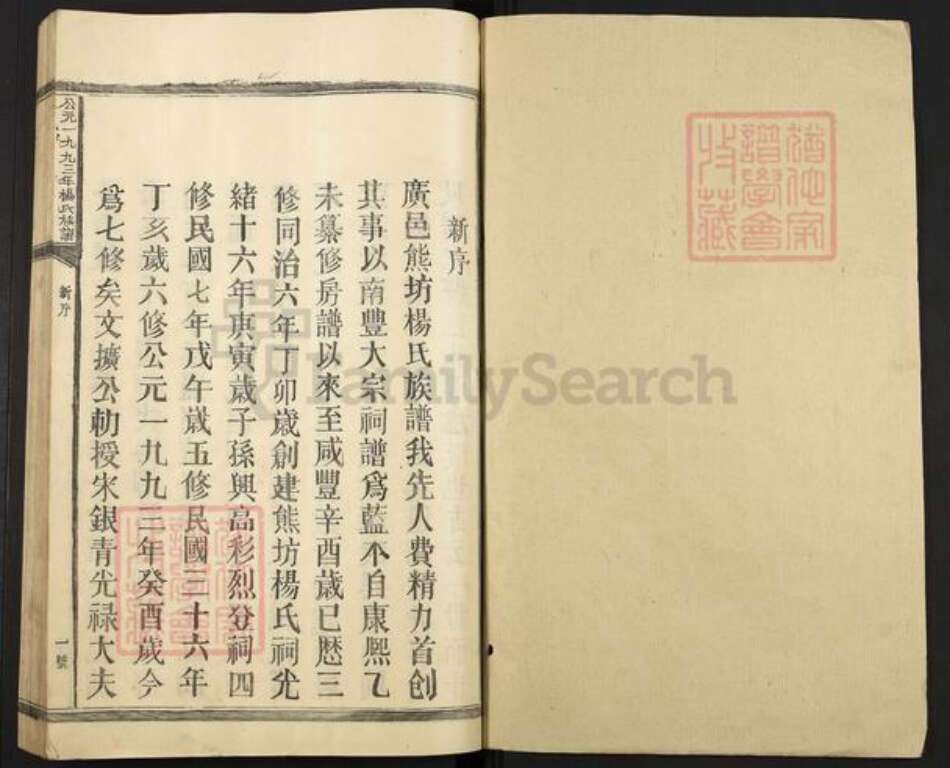 新序
廣邑熊坊楊氏族譜我先人費精力首創
其事以南豐大宗祠譜爲藍不自康熈乙
未纂修房譜以來至咸豐辛酉歲已歷三
修同治六年丁卯歲創建熊坊楊氏祠光
緒十六年庚寅歲子孫興高彩烈分祠四
修民國七年戊午歲五修民國三十六年
丁亥歲六修公元一九九三年癸酉歲今
爲七修矣文擴公勅授宋銀青光祿大夫
公元一九九三年楊氏族譜
新序
一號
譜學會
收藏
FamilySearch